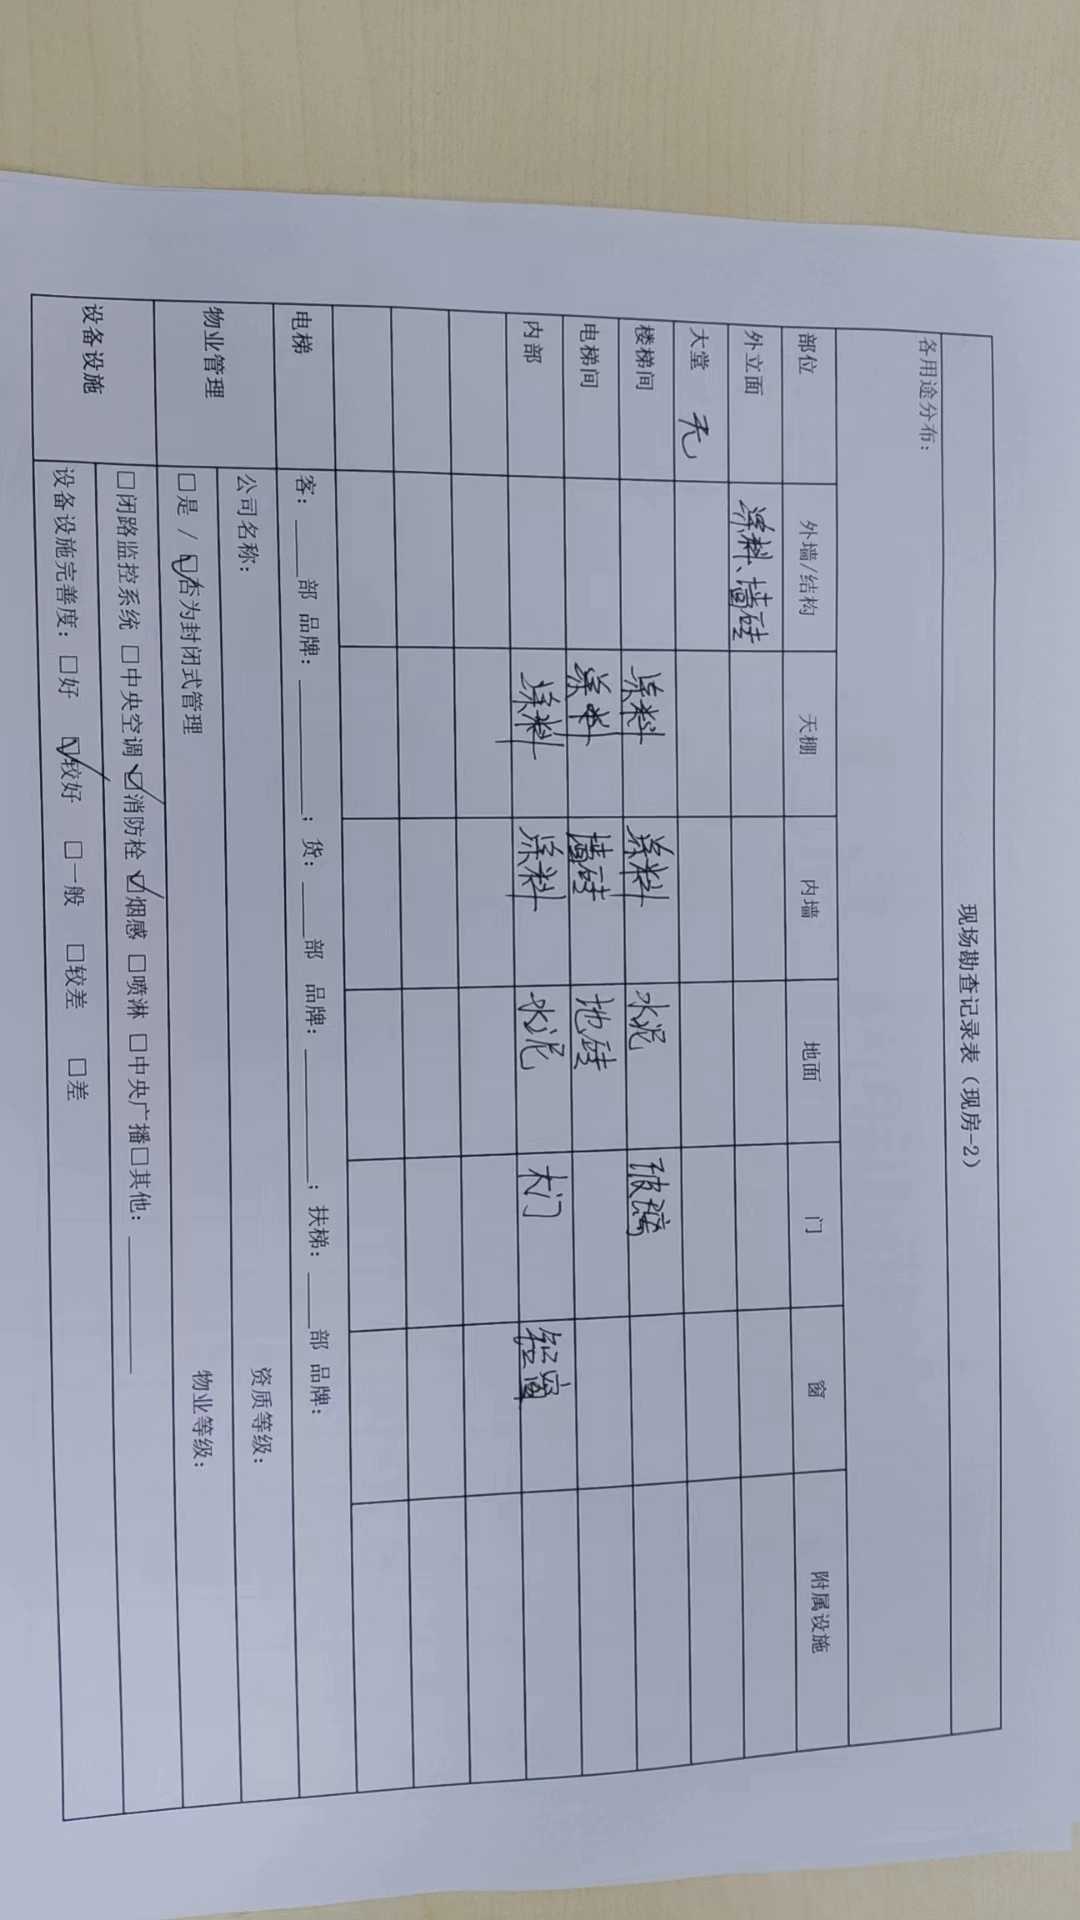 现场勘查记录表（现房-2）
各用途分布：
部位 外墙/结构 天棚 内墙 地面 门 窗 附属设施
外立面 涂料、墙砖
大堂 无
楼梯间 涂料 涂料 水泥 玻璃
电梯间 涂料 墙砖 地砖
内部 涂料 涂料 水泥 木门 铝窗
电梯 客：____部 品牌：__________；货：____部 品牌：__________；扶梯：____部 品牌：
物业管理 公司名称： 资质等级：
□是 / ☑否为封闭式管理 物业等级：
设备设施 □闭路监控系统 □中央空调 ☑消防栓 ☑烟感 □喷淋 □中央广播□其他：__________
设备设施完善度：□好 ☑较好 □一般 □较差 □差